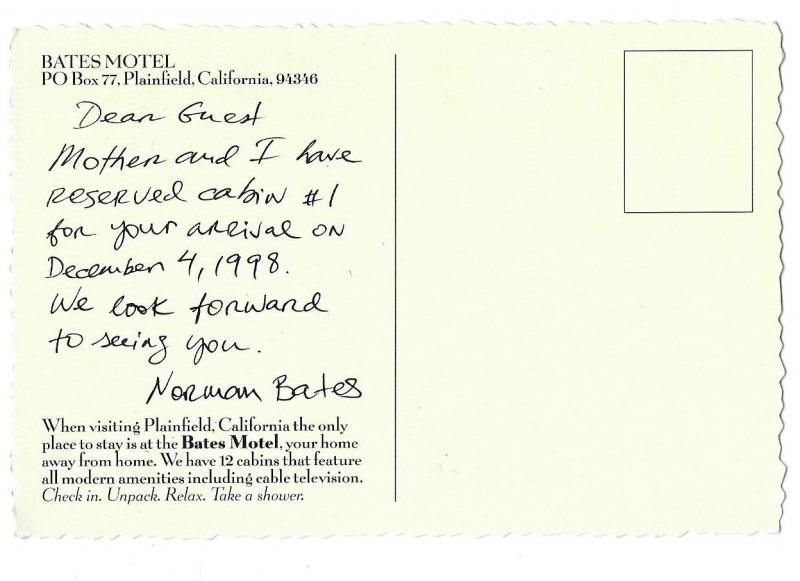 BATES MOTEL
PO Box 77, Plainfield, California, 94346
Dear Guest
Mother and I have
reserved cabin #1
for your arrival on
December 4, 1998.
We look forward
to seeing you.
Norman Bates
When visiting Plainfield, California the only
place to stay is at the Bates Motel, your home
away from home. We have 12 cabins that feature
all modern amenities including cable television.
Check in. Unpack. Relax. Take a shower.